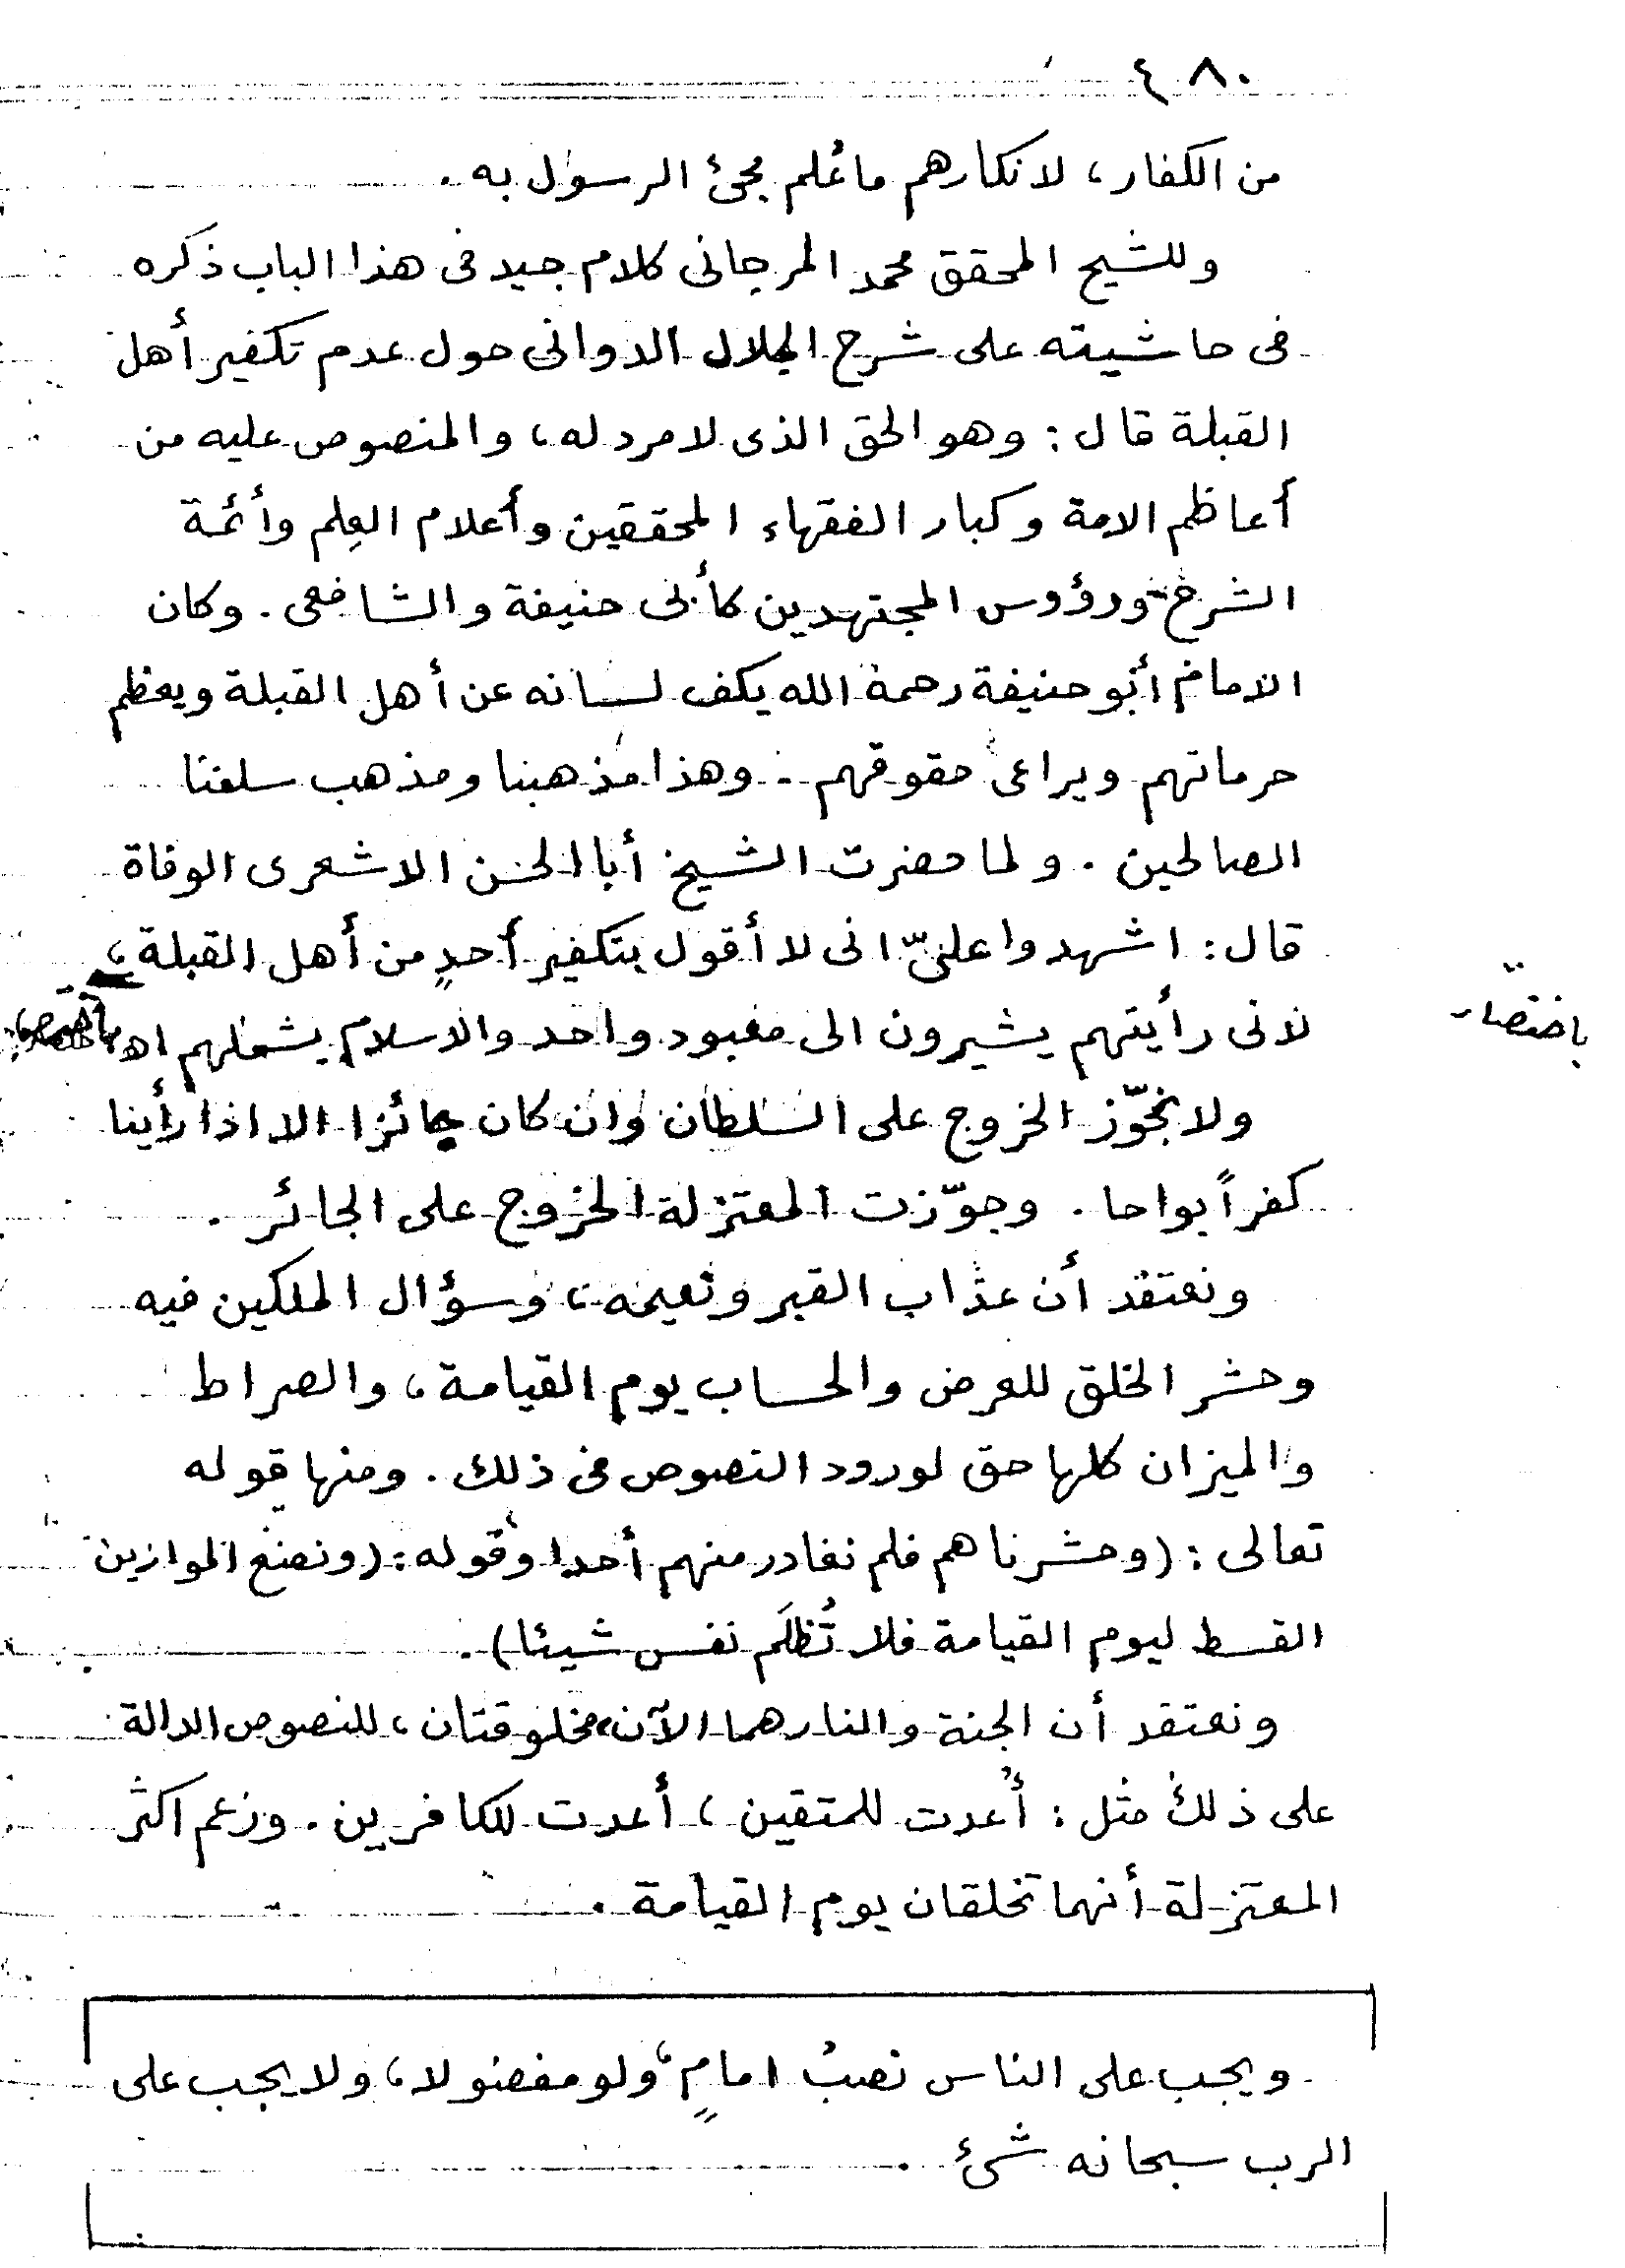 ٤٨٠
من الكفار، لانكارهم ماعُلم مجئ الرسول به.
وللشيخ المحقق محمد المرجانى كلام جيد فى هذا الباب ذكره
فى حاشيته على شرح الجلال الدوانى حول عدم تكفير أهل
القبلة قال: وهو الحق الذى لامرد له، والمنصوص عليه من
أعاظم الامة وكبار الفقهاء المحققين وأعلام العِلم وأئمة
الشرع ورؤوس المجتهدين كأبى حنيفة والشافعى. وكان
الامام أبو حنيفة رحمه الله يكف لسانه عن أهل القبلة ويعظم
حرماتهم ويراعى حقوقهم. وهذا مذهبنا ومذهب سلفنا
الصالحين. ولما حضرت الشيخ أبا الحسن الاشعرى الوفاة
قال: اشهدوا علىّ انى لا أقول بتكفير أحدٍ من أهل القبلة،
لانى رأيتهم يشيرون الى معبود واحد والاسلام يشملهم اهـ
باختصار
ولا نجوّز الخروج على السلطان وان كان جائزا الا اذا رأينا
كفراً بواحا. وجوّزت المعتزلة الخروج على الجائر.
ونعتقد أن عذاب القبر ونعيمه، وسؤال الملكين فيه
وحشر الخلق للعرض والحساب يوم القيامة، والصراط
والميزان كلها حق لورود النصوص فى ذلك. ومنها قوله
تعالى: (وحشرناهم فلم نغادر منهم أحدا وقوله: (ونضع الموازين
القسط ليوم القيامة فلا تُظلَم نفس شيئا).
ونعتقد أن الجنة والنار هما الآن مخلوقتان، للنصوص الدالة
على ذلك مثل: أُعدت للمتقين، أعدت للكافرين. وزعم اكثر
المعتزلة أنهما تخلقان يوم القيامة.
ويجب على الناس نصبُ امامٍ، ولو مفضولا، ولا يجب على
الرب سبحانه شئ.